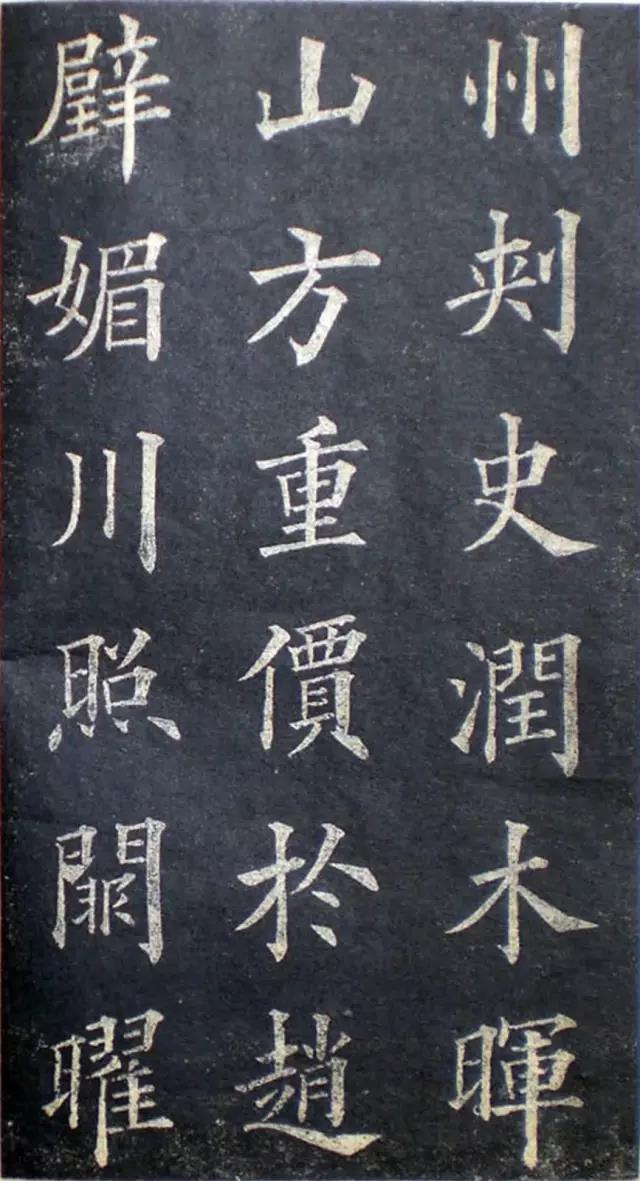 州刾史潤木暉
山方重價於趙
璧媚川照闕曜